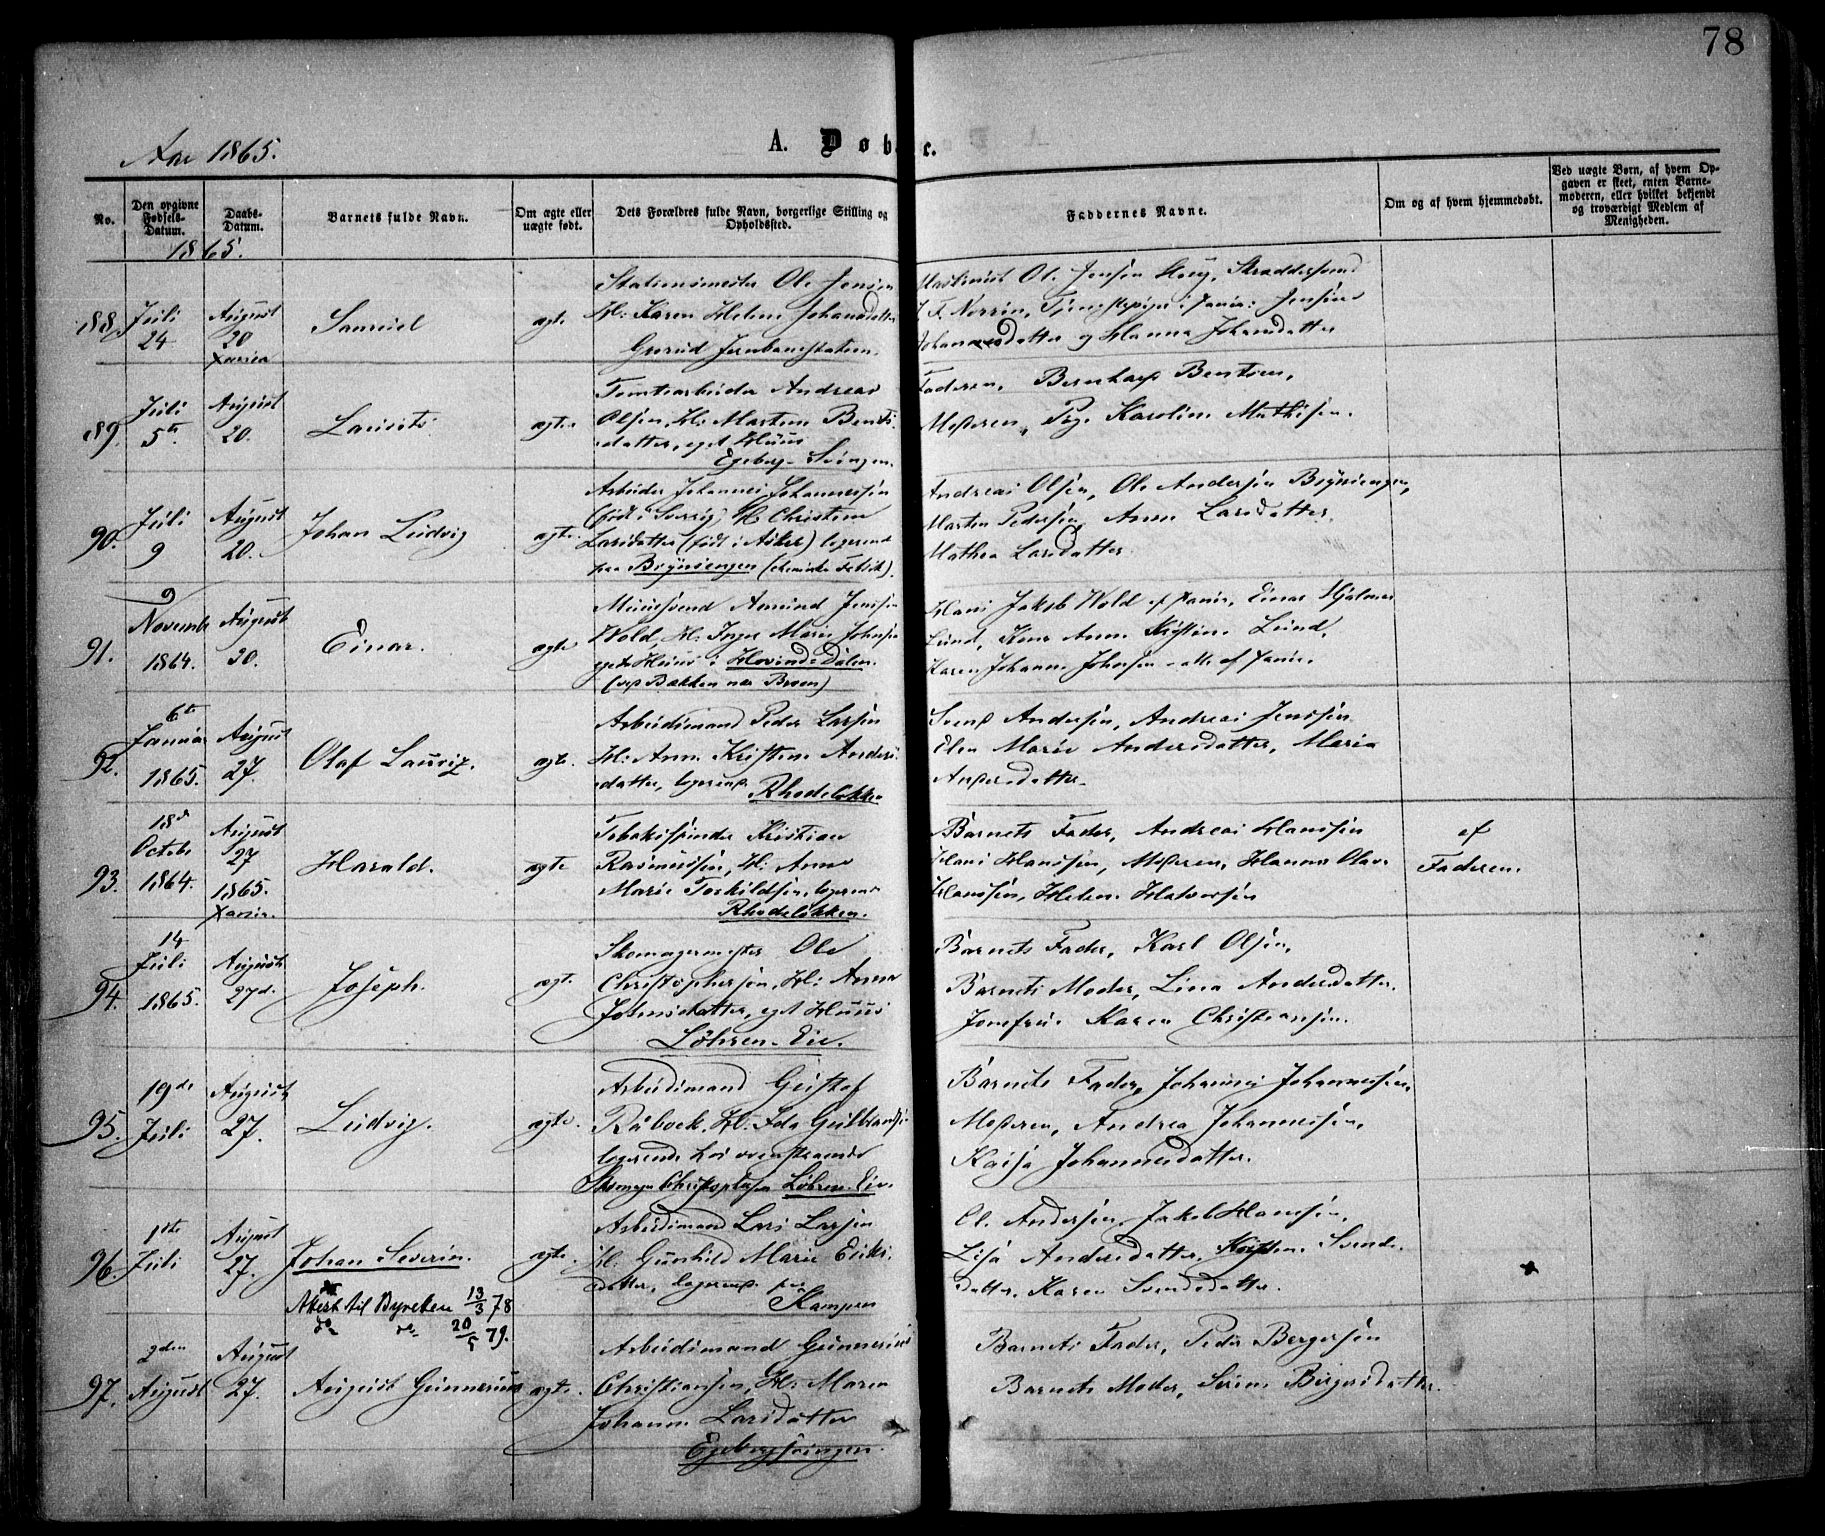 78
Aar 1865.
A. Døbte.
No.
Den opgivne Fødsels-Datum.
Daabs-Datum.
Barnets fulde Navn.
Om ægte eller uægte født.
Dets Forældres fulde Navn, borgerlige Stilling og Opholdssted.
Faddernes Navne.
Om og af hvem hjemmedøbt.
Ved uægte Børn, af hvem Opgaven er skeet, enten Barnemoderen, eller hvilket bekjendt og troværdigt Medlem af Menigheden.
1865.
88. Juli 24 August 20 Xania Samuel ægte
Stationsmester Ole Jensen
H: Karen Helene Johansdatter
Grorud Jernbanestation.
Ole Jensen
Tjenestepige Jensine
Johannesdatter og Hanna Johansdatter
89. Juli 5te August 20. Laurits ægte
Tomtearbeider Andreas
Olsen, H: Marten Bents-
datter, eget Huus
Egeberg-Svingen.
Faderen, Bernhard Bentsen,
Moderen, Pige Karoline Mathisen.
90. Juli 9 August 20. Johan Ludvig ægte
Arbeider Johannes Johannessen
(født i Sverrig) H: Christine
Larsdatter (født i Asker) logerende
paa Brynsengen (chemiske Fabrik).
Andreas Olsen, Ole Andersen Brynsengen,
Marten Pedersen, Anne Larsdatter,
Mathea Larsdatter.
91. 9 Novembr 1864. August 20. Einar. ægte
Muursvend Amund Jensen
Wold, H: Inger Marie Johnsen
eget Huus i Hovindsdalen.
(ved Bækken nær Broen)
Hans Jakob Wold af Xania, Einar Hjalmar
Lund, Kone Anne Kristine Lund,
Karen Johanne Johnsen - alle af Xania.
92. 6te Januar 1865. August 27. Olaf Lauritz. ægte.
Arbeidsmand Peder Larsen
H: Anne Kristine Anders-
datter, logerend Rhodeløkken
Svend Andersen, Andreas Jensen
Elen Marie Andersdatter, Maria
Andersdatter.
93. 18de Octobr 1864. August 27 1865. Xania. Harald. ægte
Tobakspinder Kristian
Rasmussen, H: Anne
Marie Torkildsen, logerende
Rhodeløkken.
Barnets Fader, Andreas Hansen
Hans Hansen, Moderen, Hanne Olava
Hansen, Helene Halvorsen
af
Faderen.
94. 14 Juli 1865. August 27de. Joseph. ægt.
Skomagermester Ole
Christophersen, H: Anna
Johnsdatter, eget Huus
Löhren-Eie.
Barnets Fader, Karl Olsen,
Barnets Moder, Lina Andersdatter.
Jomfru Karen Christiansen.
95. 19de Juli August 27. Ludvig. ægte.
Arbeidsmand Gustaf
Råbock, H: Ida Gulbrands
logerende hos ovenstaaende
Skomager Christophersen Löhren-Eie.
Barnets Fader, Johannes Johannessen,
Moderen, Andrea Johannessen,
Kaisa Johannesdatter.
96. 1ste Juli August 27. Johan Severin. ægte.
Attest til Byretten 13/3 78
do do 20/5 79.
Arbeidsmand Lars Larsen
H: Gunhild Marie Eriks-
datter, logerend. paa
Kampen
Ol. Andersen, Jakob Hansen,
Lisa Andersdatter, Kristine Svends-
datter, Karen Svendsdatter.
97. 2den August August 27. August Gunnerius ægte.
Arbeidsmand Gunnerius
Christiansen, H: Maren
Johanne Larsdatter
Egebergsvingen.
Barnets Fader, Peder Bergersen
Barnets Moder, Sirene Birgersdatter.